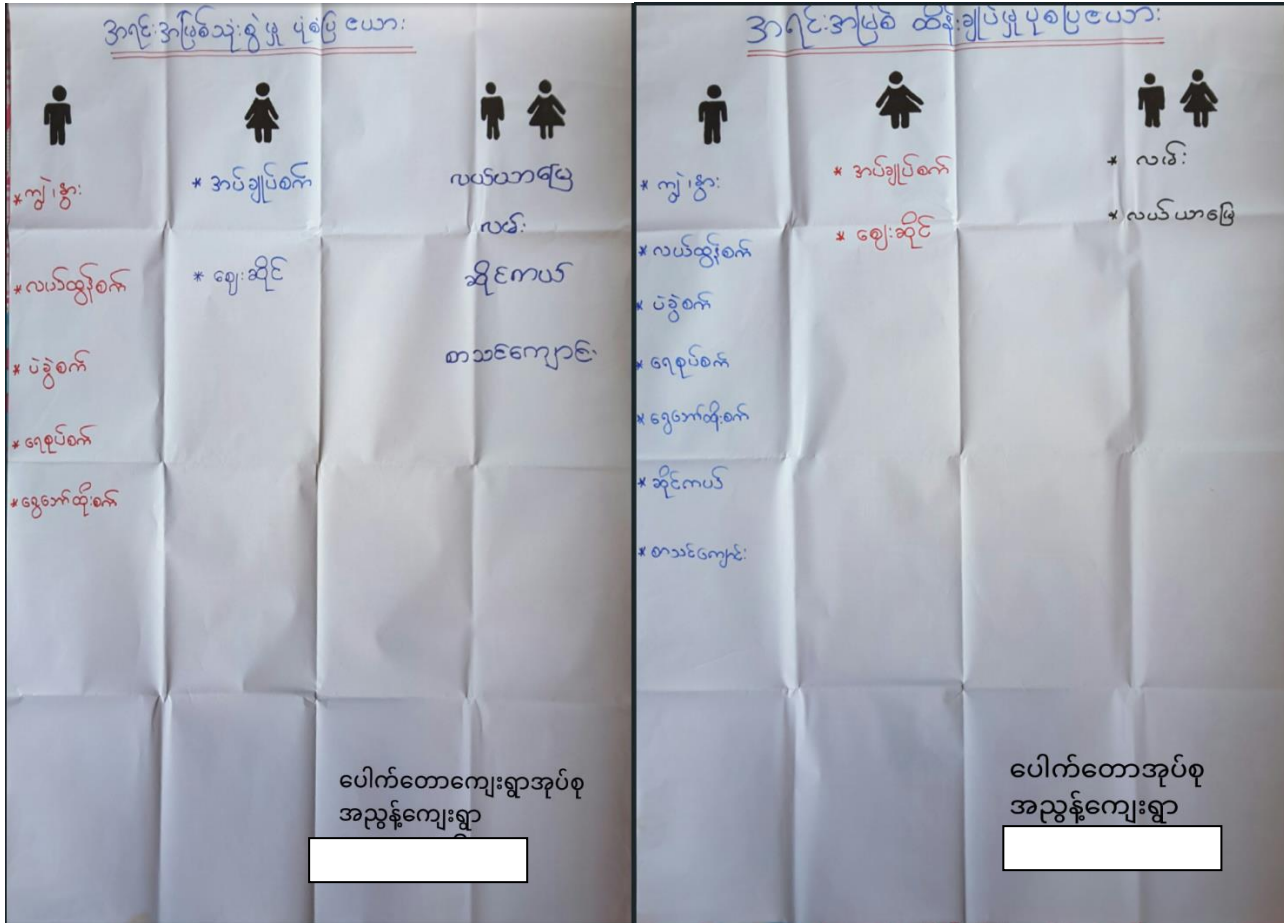 အရင်းအမြစ်သုံးစွဲမှု ပုံစံပြ ဇယား
* ကျွဲ၊ နွား
* လယ်ထွန်စက်
* ပဲခွဲစက်
* ရေစုပ်စက်
* ရွှေဘော်ထိုးစက်
* အပ်ချုပ်စက်
* ဈေးဆိုင်
လယ်ယာမြေ
လမ်း
ဆိုင်ကယ်
စာသင်ကျောင်း
ပေါက်တောကျေးရွာအုပ်စု
အညွန့်ကျေးရွာ
အရင်းအမြစ် ထိန်းချုပ်မှု ပုံစံပြဇယား
* ကျွဲ၊ နွား
* လယ်ထွန်စက်
* ပဲခွဲစက်
* ရေစုပ်စက်
* ရွှေဘော်ထိုးစက်
* ဆိုင်ကယ်
* စာသင်ကျောင်း
* အပ်ချုပ်စက်
* ဈေးဆိုင်
* လမ်း
* လယ်ယာမြေ
ပေါက်တောအုပ်စု
အညွန့်ကျေးရွာ